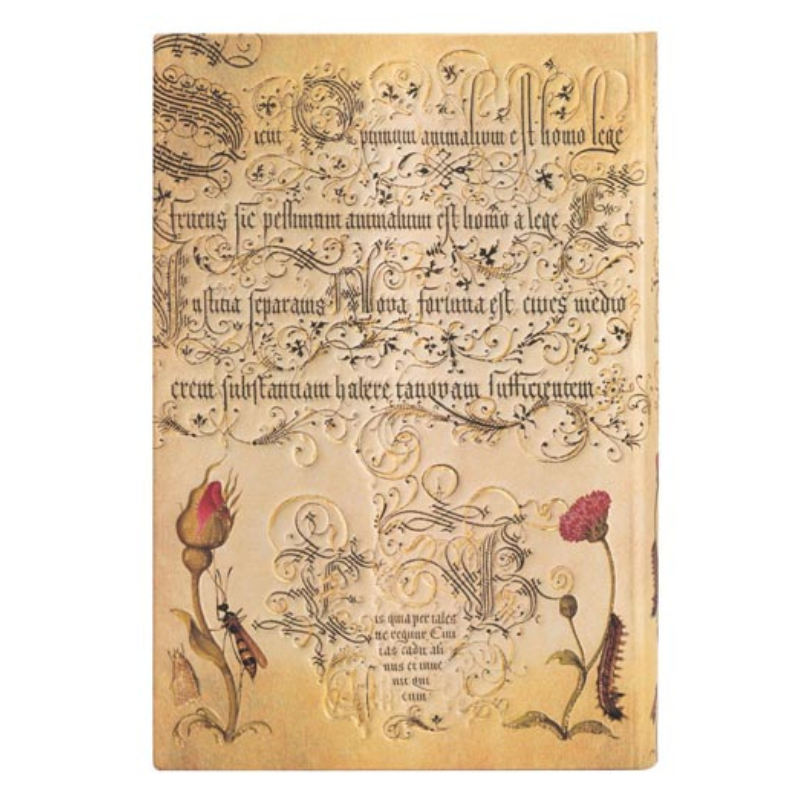 Sicut Optimum animalium est homo lege
fruens sic pessimum animalium est homo a lege Et
Iustitia separatus Nova fortuna est cives medio
crem substantiam habere tanquam sufficientem
is quia per tales
ne regitur Civi
tas cadit ali